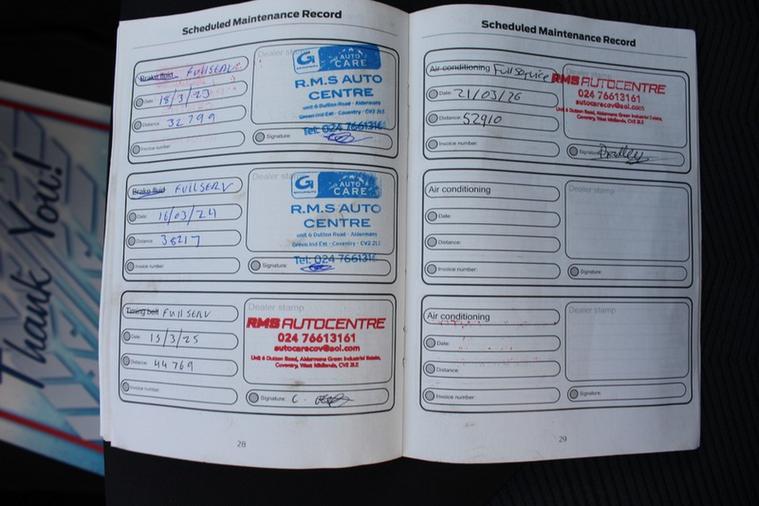 Scheduled Maintenance Record
Brake fluid FULLSERV
Date: 18/3/23
Distance: 32799
Invoice number:
Dealer stamp
G AUTO CARE
R.M.S AUTO
CENTRE
unit 6 Dutton Road - Aldermans
Green Ind Est - Coventry - CV2 2LE
Tel: 024 7661316
Signature:
Brake fluid FULLSERV
Date: 16/03/24
Distance: 38217
Invoice number:
Dealer stamp
G AUTO CARE
R.M.S AUTO
CENTRE
unit 6 Dutton Road - Aldermans
Green Ind Est - Coventry - CV2 2LE
Tel: 024 7661316
Signature:
Timing belt FULLSERV
Date: 15/3/25
Distance: 44769
Invoice number:
Dealer stamp
RMS AUTOCENTRE
024 76613161
autocarecov@aol.com
Unit 6 Dutton Road, Aldermans Green Industrial Estate,
Coventry, West Midlands, CV2 2LE
Signature: C.
28
Scheduled Maintenance Record
Air conditioning Full Service
Date: 21/03/26
Distance: 52910
Invoice number:
RMS AUTOCENTRE
024 76613161
autocarecov@aol.com
Unit 6 Dutton Road, Aldermans Green Industrial Estate,
Coventry, West Midlands, CV2 2LE
Signature: Bradley
Air conditioning
Date:
Distance:
Invoice number:
Dealer stamp
Signature:
Air conditioning
Date:
Distance:
Invoice number:
Dealer stamp
Signature:
29
Thank You!